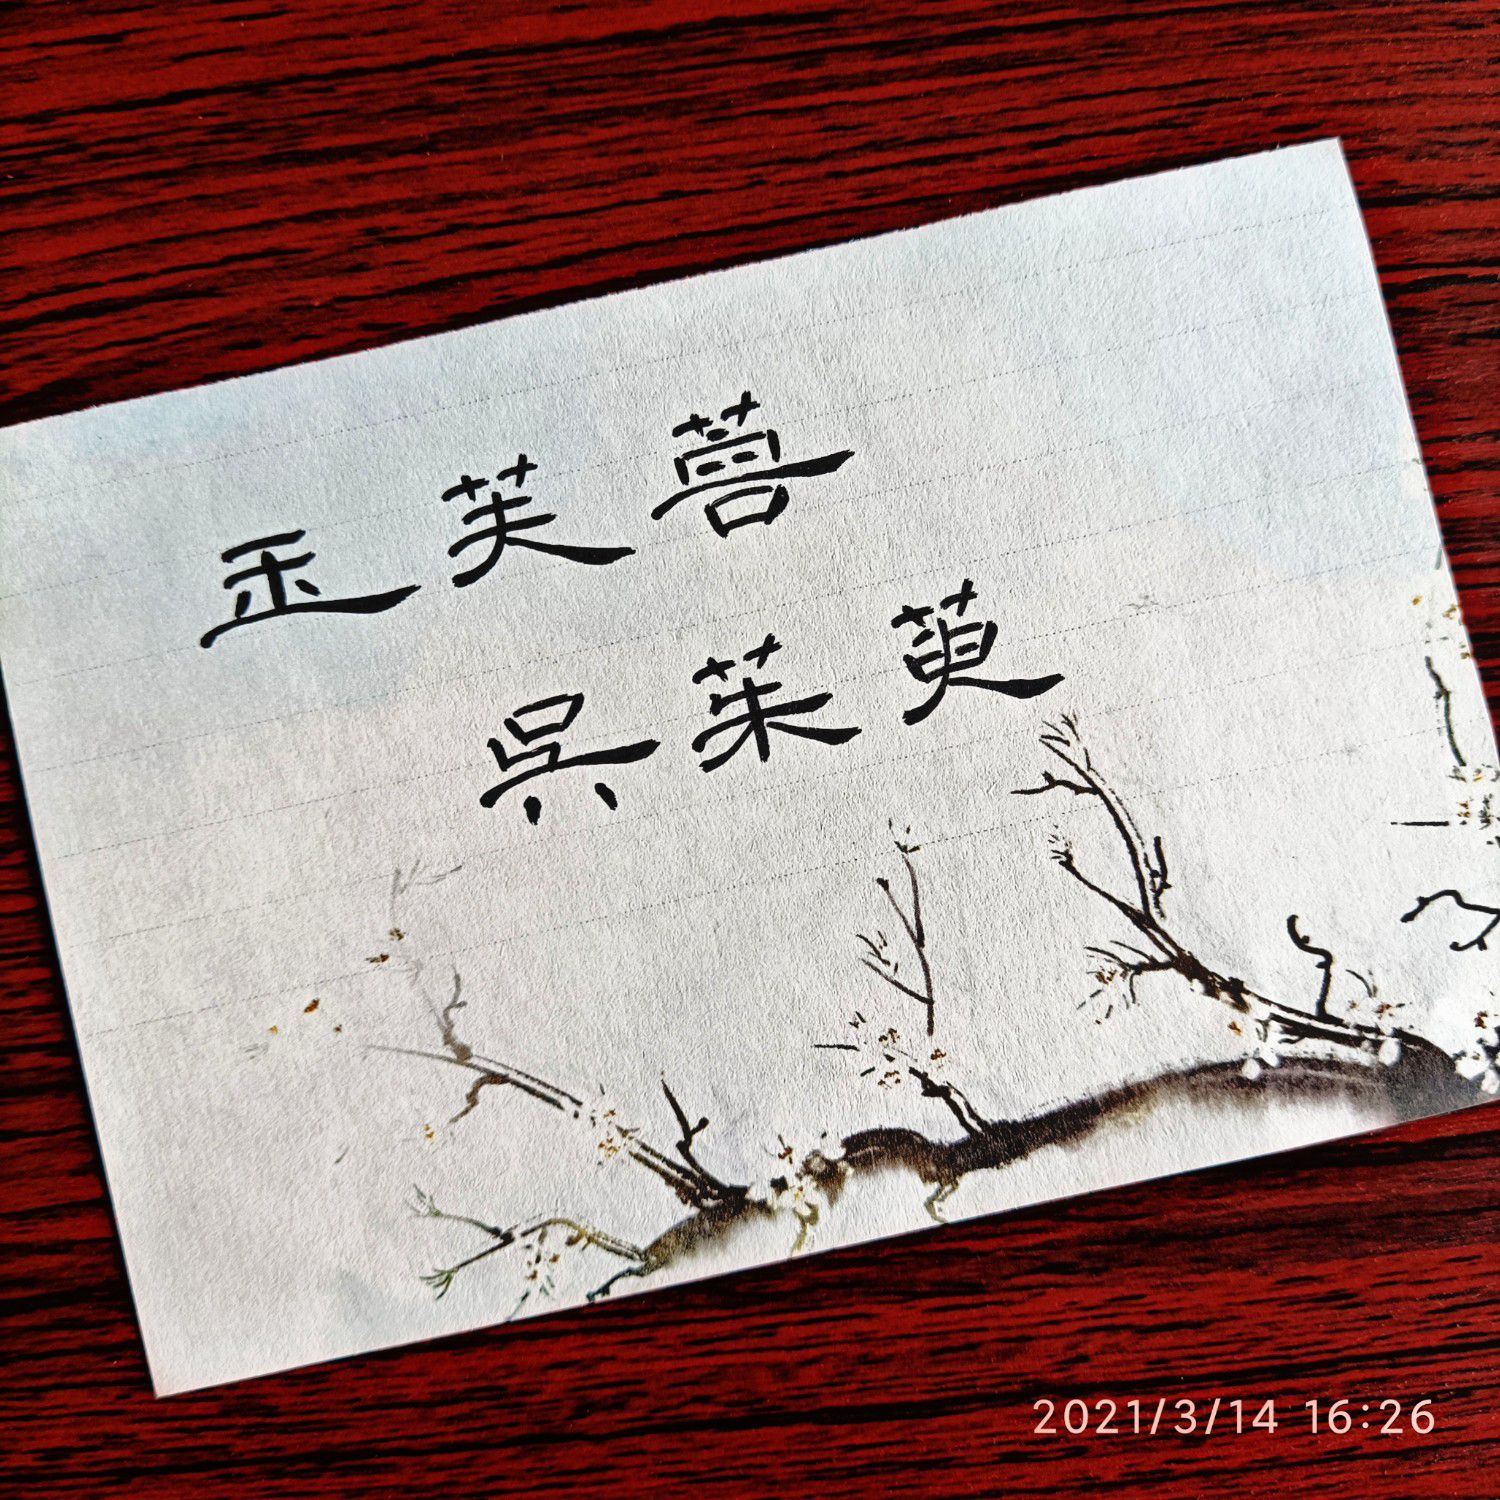 玉芙蓉
呉茱萸
2021/3/14 16:26